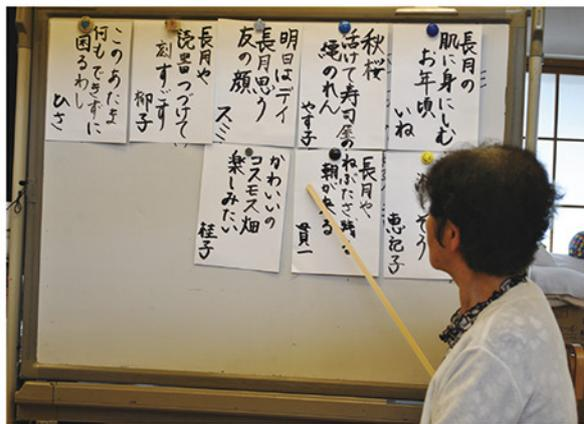 長月の
肌に身にしむ
お年頃
いね
秋桜
活けて寿司屋の
縄のれん
やす子
明日はデイ
長月思う
友の顔
スミ
長月や
読書つづけて
刻すごす
柳子
このあたま
何もできずに
困るわし
ひさ
そう
恵記子
長月や
ねぶたさ残る
朝が
貫一
かわいいの
コスモス畑
楽しみたい
桂子